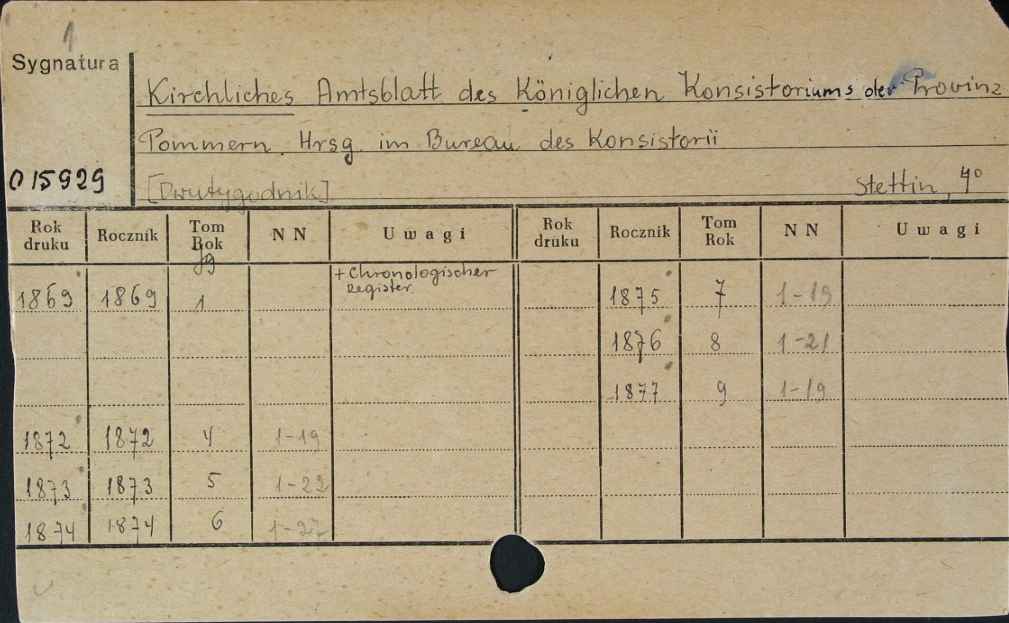 1
Sygnatura
Kirchliches Amtsblatt des Königlichen Konsistoriums der Provinz
Pommern. Hrsg. im Bureau des Konsistorii
015929
[Dwutygodnik]
Stettin, 4°
Rok druku Rocznik Tom Rok NN Uwagi Rok druku Rocznik Tom Rok NN Uwagi
Jg
+ Chronologischer
Register
1869 1869 1 1875 7 1-19
1876 8 1-21
1877 9 1-19
1872 1872 4 1-19
1873 1873 5 1-22
1874 1874 6